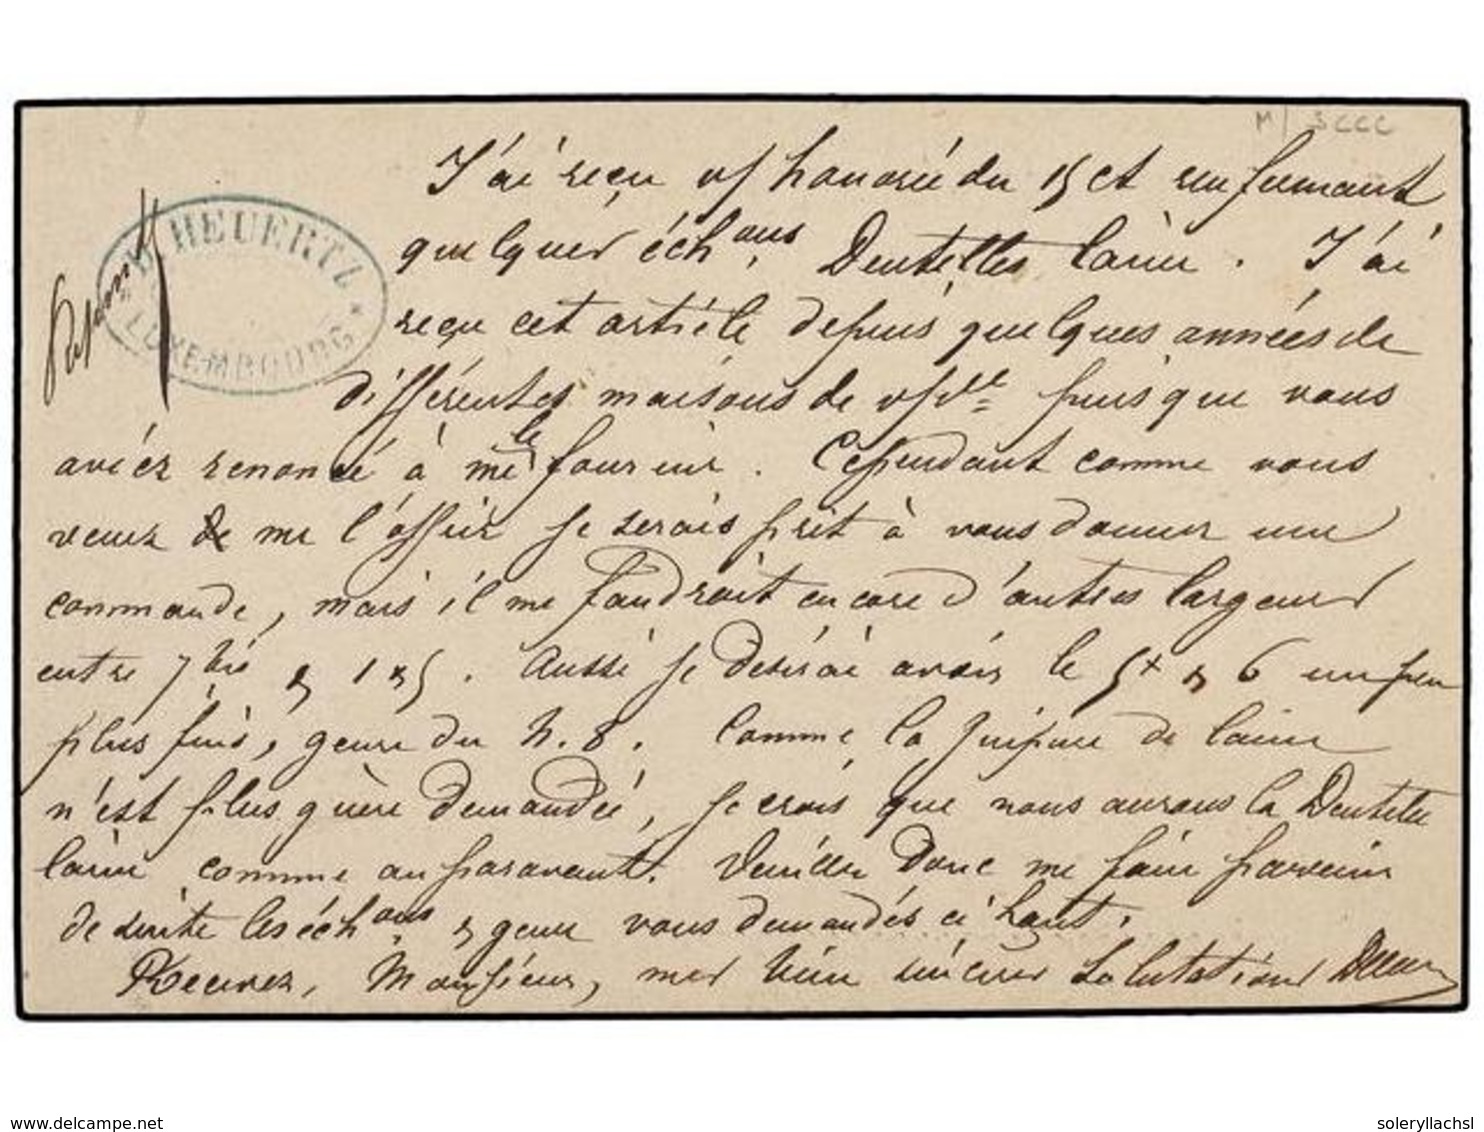 M/ SCCC
J'ai reçu v/ honorée du 15 ct renfermant
HEUERTZ
LUXEMBOURG
quelques éch.ons Dentelles laine. J'ai
reçu cet article depuis quelques années de
différentes maisons de v/ v.le puisque vous
aviez renoncé à me le fournir. Cependant comme vous
venez de me l'offrir je serais prêt à vous donner une
commande, mais il me faudrait encore d'autres largeurs
entre 7 & 15. Aussi je désirai avoir le 5 & 6 un peu
plus fins, genre du N. 8. Comme la guipure de laine
n'est plus guère demandée, je crois que nous aurons la Dentelle
laine comme auparavant. Veuillez donc me faire parvenir
de suite les éch.ons & genre vous demandés ci haut.
Recevez, Monsieur, mes bien sincères salutations
delcampe.net
soleryllachsl